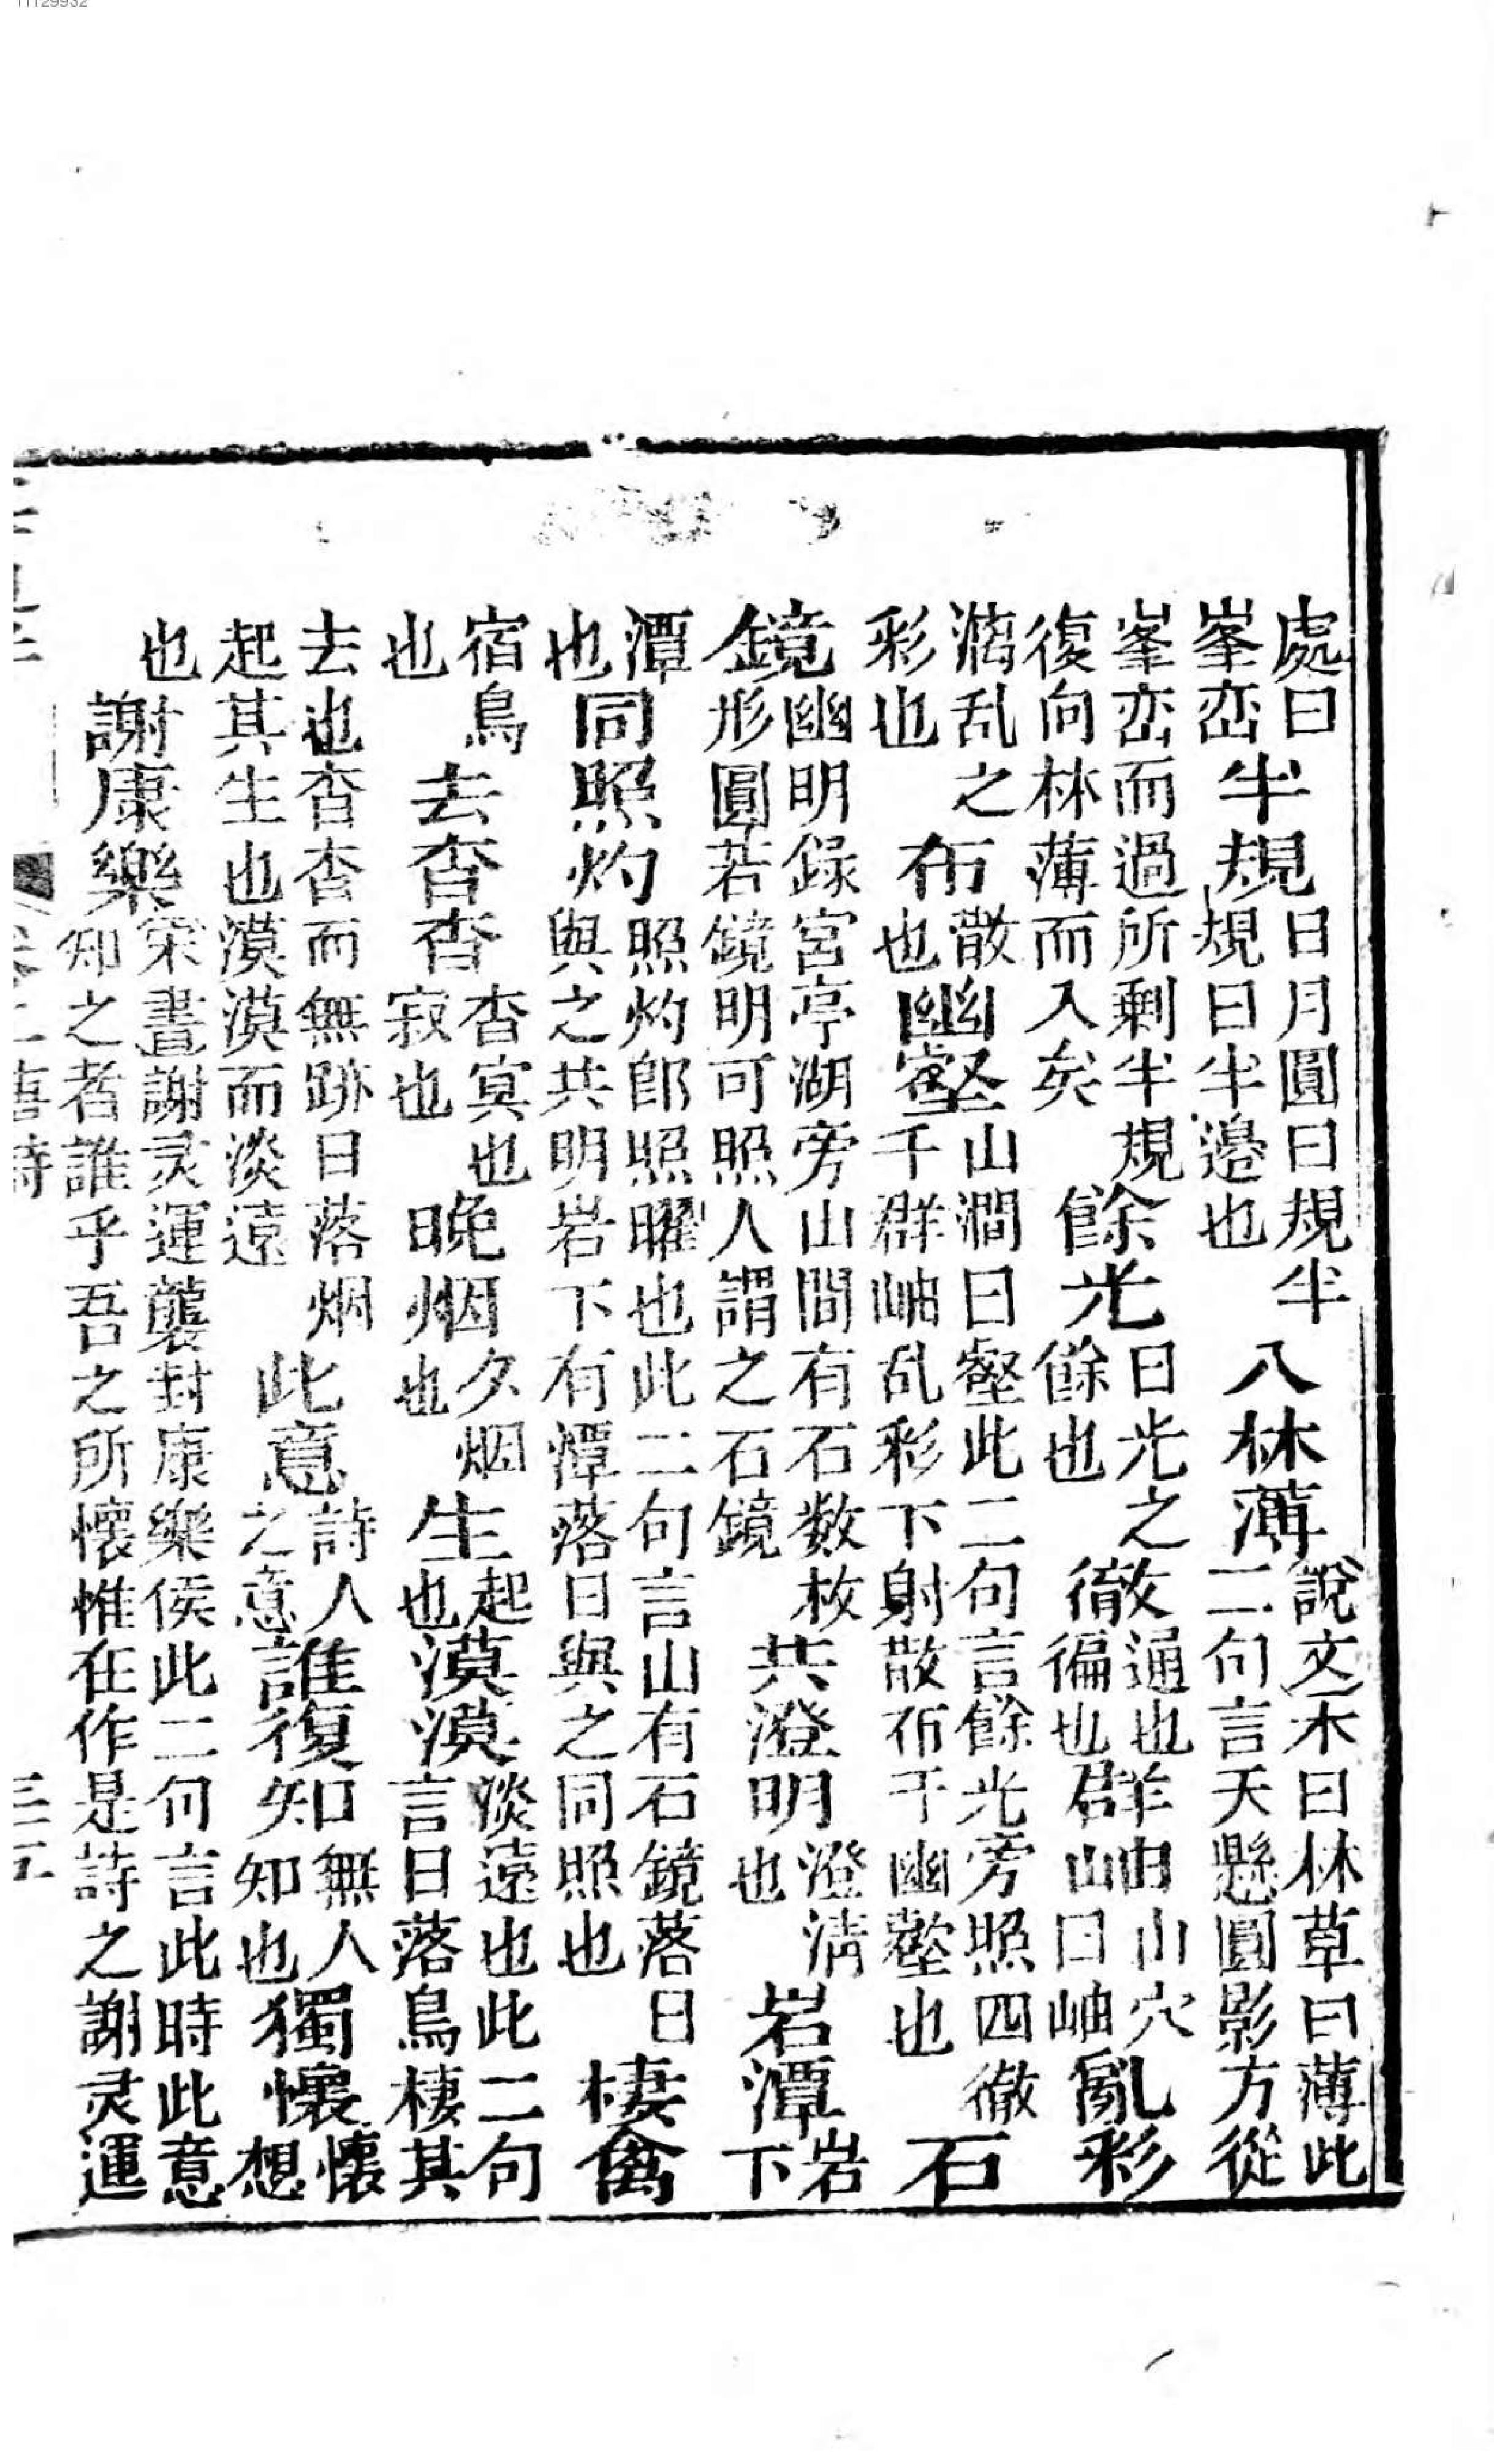 處曰峯巒半規日月圓曰規半規曰半邊也八林薄說文木曰林草曰薄此二句言天懸圓影方從
峯巒而過所剩半規復向林薄而入矣餘光日光之餘也徹通也徧也群岫山穴曰岫亂彩
漓乱之彩也布散也幽壑山澗曰壑此二句言餘光旁照四徹千群岫乱彩下射散布千幽壑也石
鏡幽明録宮亭湖旁山間有石数枚形圓若鏡明可照人謂之石鏡共澄明澄清也岩潭岩下
潭也同照灼照灼郎照曜也此二句言山有石鏡落日與之共明岩下有潭落日與之同照也棲禽
宿鳥也去杳杳杳冥也寂也晚烟夕烟也生起也漠漠淡遠也此二句言日落鳥棲其
去也杳杳而無跡日落烟起其生也漠漠而淡遠此意詩人之意誰復知無人知也獨懷懷想
也謝康樂宋書謝灵運襲封康樂侯此二句言此時此意知之者誰乎吾之所懷惟在作是詩之謝灵運